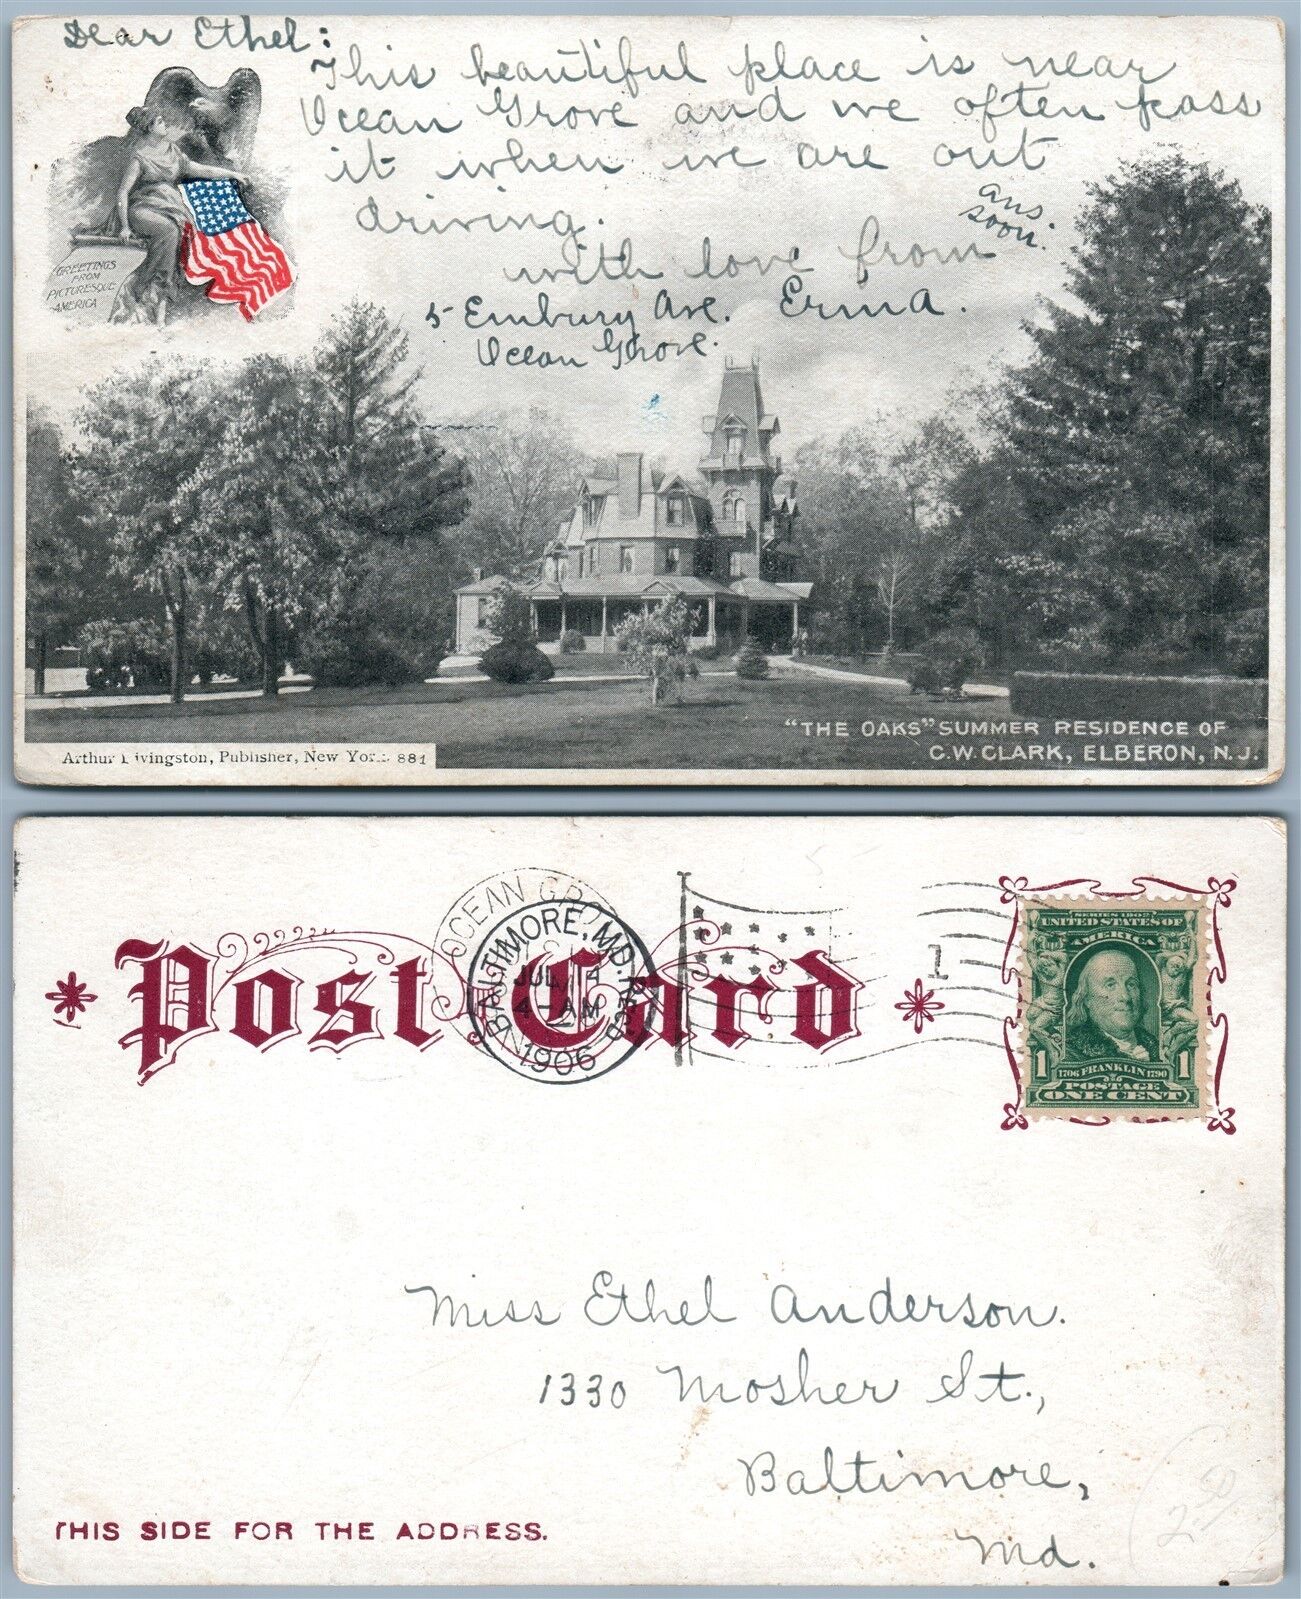 Dear Ethel:
This beautiful place is near
Ocean Grove and we often pass
it when we are out
driving.
ans.
soon.
with love from
5 Embury Ave. Erma.
Ocean Grove.
GREETINGS
FROM
PICTURESQUE
AMERICA
"THE OAKS" SUMMER RESIDENCE OF
C.W. CLARK, ELBERON, N.J.
Arthur Livingston, Publisher, New York. 881
Post Card
OCEAN GROVE
BALTIMORE, MD. REC'D
JUL 14
4-AM
1906
1
SERIES 1902
UNITED STATES OF
AMERICA
1 1
1706 FRANKLIN 1790
POSTAGE
ONE CENT
Miss Ethel Anderson.
1330 Mosher St.,
Baltimore,
Md.
2.50
THIS SIDE FOR THE ADDRESS.